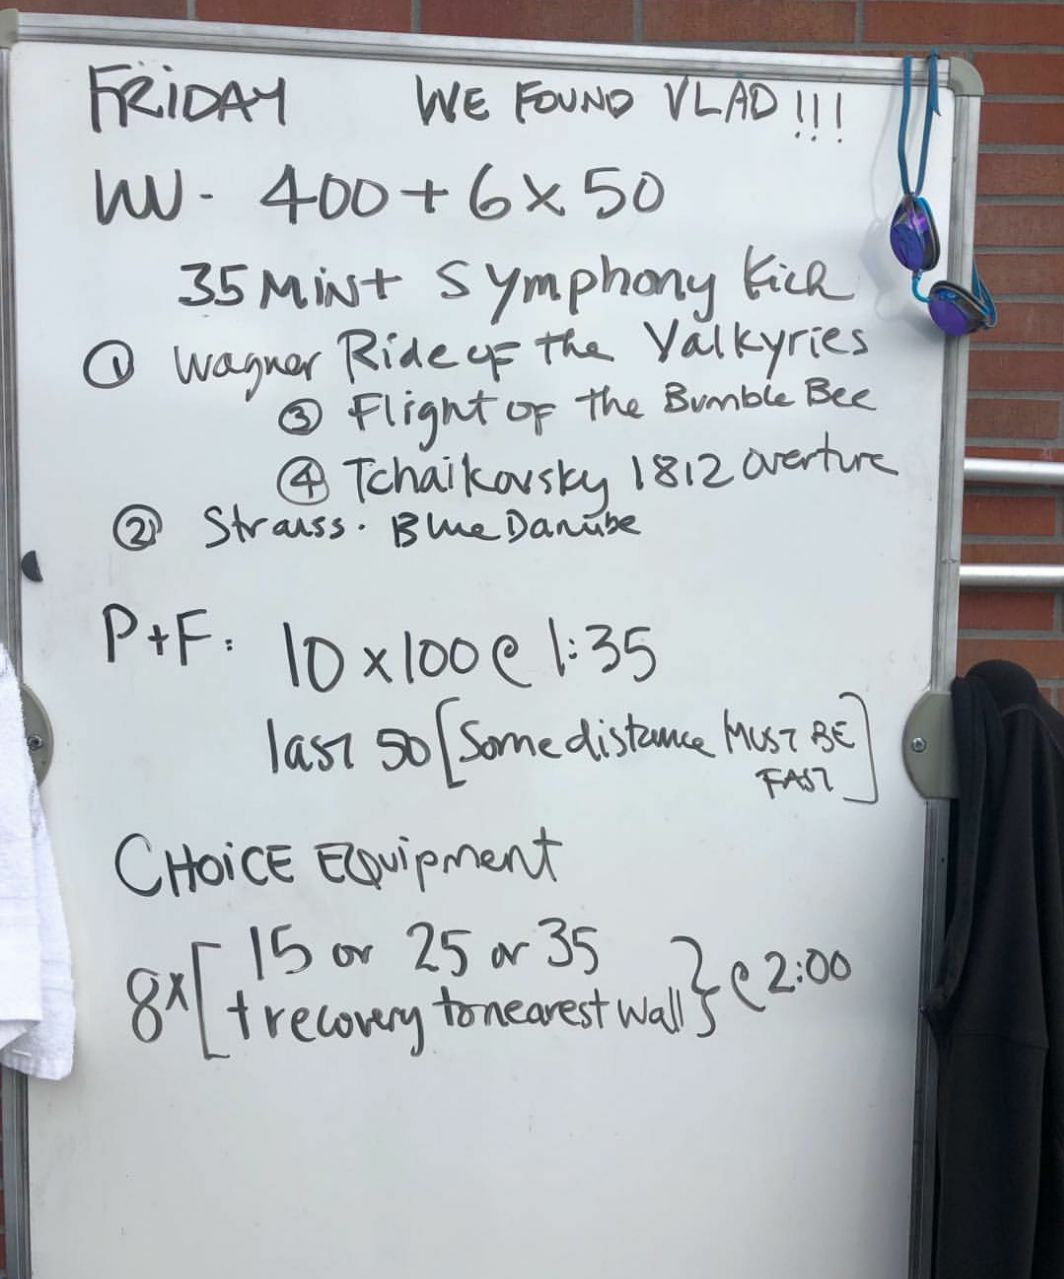 FRiDAY WE FOUND VLAD !!!
WU - 400 + 6 x 50
35 Min+ Symphony Kick
① Wagner Ride of the Valkyries
③ Flight of the Bumble Bee
④ Tchaikovsky 1812 overture
② Strauss . Blue Danube
P+F: 10 x 100 @ 1:35
last 50 [Some distance MUST BE
FAST]
CHOiCE EQuipment
8x [15 or 25 or 35
+ recovery to nearest wall} @ 2:00